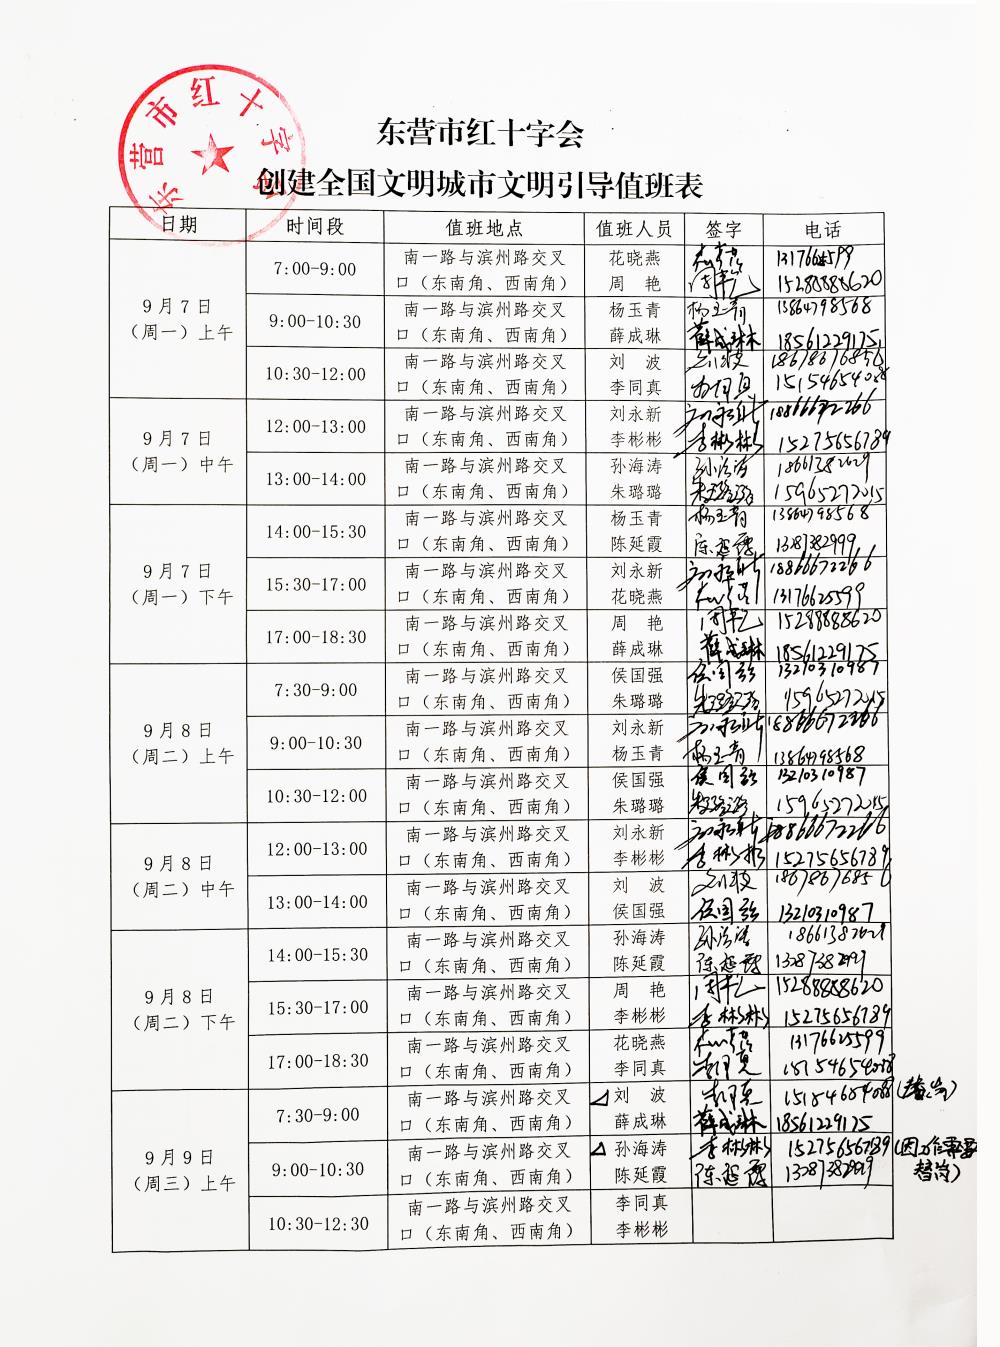 东营市红十字会
东营市红十字会
创建全国文明城市文明引导值班表
日期 时间段 值班地点 值班人员 签字 电话
9月7日
（周一）上午
7:00-9:00
南一路与滨州路交叉
口（东南角、西南角）
花晓燕
周 艳 周艳 15288888620
9:00-10:30
南一路与滨州路交叉
口（东南角、西南角）
杨玉青 杨玉青 13864798568
薛成琳 薛成琳 18561229175
10:30-12:00
南一路与滨州路交叉
口（东南角、西南角）
刘 波 刘波 18678676856
李同真 15154654088
9月7日
（周一）中午
12:00-13:00
南一路与滨州路交叉
口（东南角、西南角）
刘永新 刘永新 18866672266
李彬彬 李彬彬 15275656789
13:00-14:00
南一路与滨州路交叉
口（东南角、西南角）
孙海涛 孙海涛
朱璐璐 朱璐璐 15965272015
9月7日
（周一）下午
14:00-15:30
南一路与滨州路交叉
口（东南角、西南角）
杨玉青 杨玉青 13864798568
陈延霞 陈延霞
15:30-17:00
南一路与滨州路交叉
口（东南角、西南角）
刘永新 刘永新 18866672266
花晓燕 13176625599
17:00-18:30
南一路与滨州路交叉
口（东南角、西南角）
周 艳 周艳 15288888620
薛成琳 薛成琳 18561229175
9月8日
（周二）上午
7:30-9:00
南一路与滨州路交叉
口（东南角、西南角）
侯国强 侯国强 13210310987
朱璐璐 朱璐璐 15965272015
9:00-10:30
南一路与滨州路交叉
口（东南角、西南角）
刘永新 刘永新 18866672266
杨玉青 杨玉青 13864798568
10:30-12:00
南一路与滨州路交叉
口（东南角、西南角）
侯国强 侯国强 13210310987
朱璐璐 朱璐璐 15965272015
9月8日
（周二）中午
12:00-13:00
南一路与滨州路交叉
口（东南角、西南角）
刘永新 刘永新 18866672266
李彬彬 李彬彬 15275656789
13:00-14:00
南一路与滨州路交叉
口（东南角、西南角）
刘 波 刘波 18678676856
侯国强 侯国强 13210310987
9月8日
（周二）下午
14:00-15:30
南一路与滨州路交叉
口（东南角、西南角）
孙海涛 孙海涛
陈延霞 陈延霞
15:30-17:00
南一路与滨州路交叉
口（东南角、西南角）
周 艳 周艳 15288888620
李彬彬 李彬彬 15275656789
17:00-18:30
南一路与滨州路交叉
口（东南角、西南角）
花晓燕 13176625599
李同真 李同真 15154654088
9月9日
（周三）上午
7:30-9:00
南一路与滨州路交叉
口（东南角、西南角）
刘 波 李同真 15154654088（替岗）
薛成琳 薛成琳 18561229175
9:00-10:30
南一路与滨州路交叉
口（东南角、西南角）
孙海涛 李彬彬 15275656789（因工作需要
陈延霞 陈延霞 替岗）
10:30-12:30
南一路与滨州路交叉
口（东南角、西南角）
李同真
李彬彬